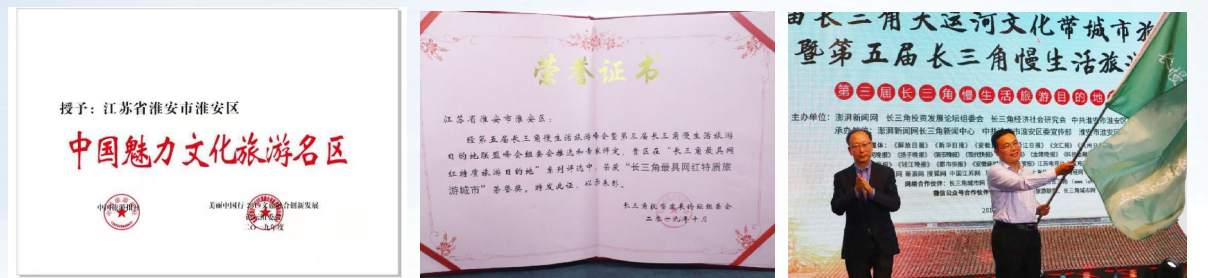 授予：江苏省淮安市淮安区
中国魅力文化旅游名区
中国旅游报社
二〇一九年度
荣誉证书
江苏省淮安市淮安区：
经第五届长三角慢生活旅游峰会暨第三届长三角慢生活旅游
目的地联盟峰会组委会推选和专家评定，贵区在“长三角最具网
红特质旅游目的地”系列评选中，荣获“长三角最具网红特质旅
游城市”荣誉奖。特发此证，以示表彰。
长三角投资发展论坛组委会
二零一九年十月
届长三角大运河文化带城市旅
暨第五届长三角慢生活旅
第三届长三角慢生活旅游目的地
主办单位：澎湃新闻网 长三角投资发展论坛组委会 长三角经济社会研究会 中共淮安市淮安区
承办 澎湃新闻网长三角新闻中心 中共 市淮安区委宣传部 淮安市
网络合作伙伴：长三角城市网
微信公众号合作伙伴